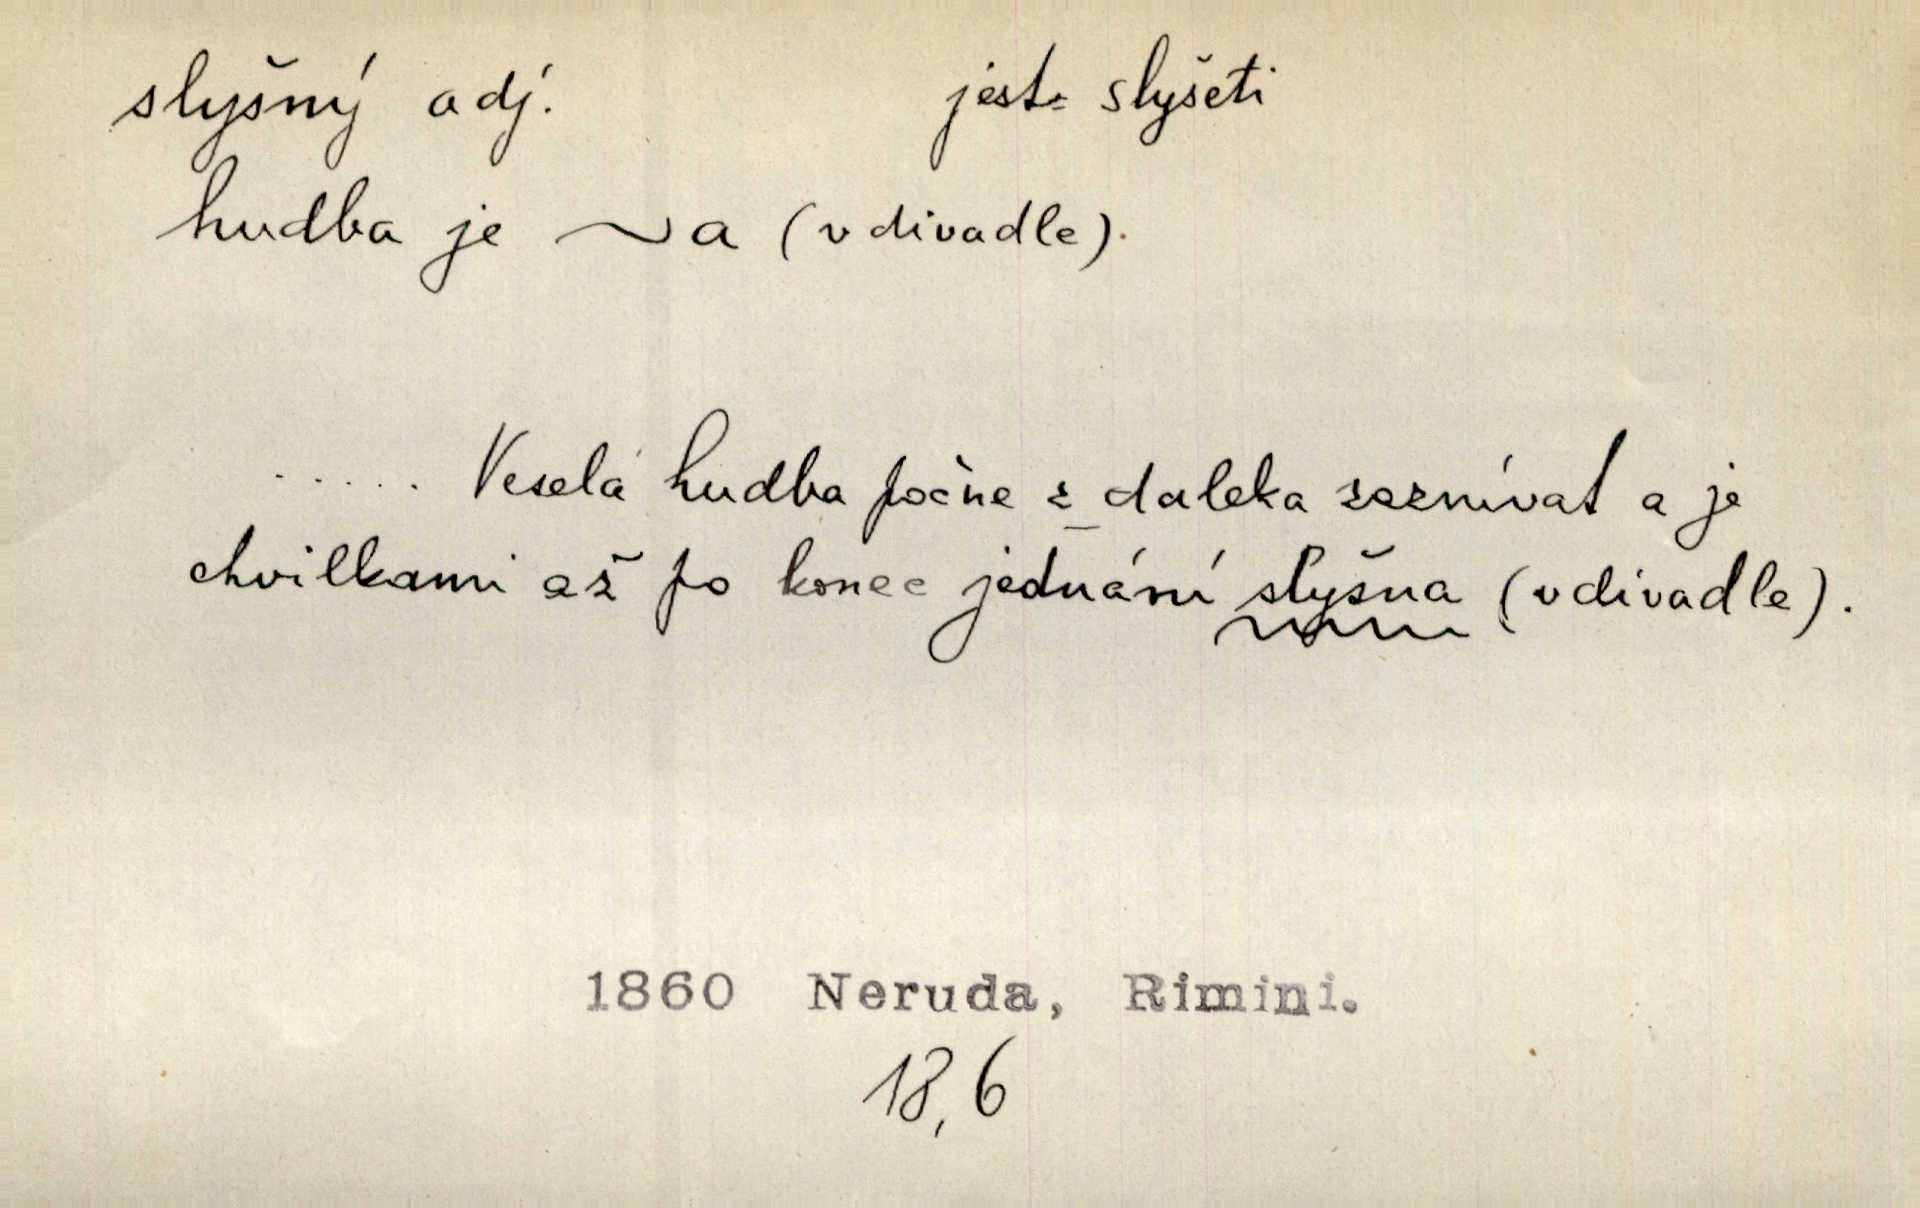 slyšný adj. jest= slyšeti
hudba je ~a (v divadle).
..... Veselá hudba počne z daleka zaznívat a je
chvilkami až po konec jednání slyšna (v divadle).
1860 Neruda, Rimini.
18,6